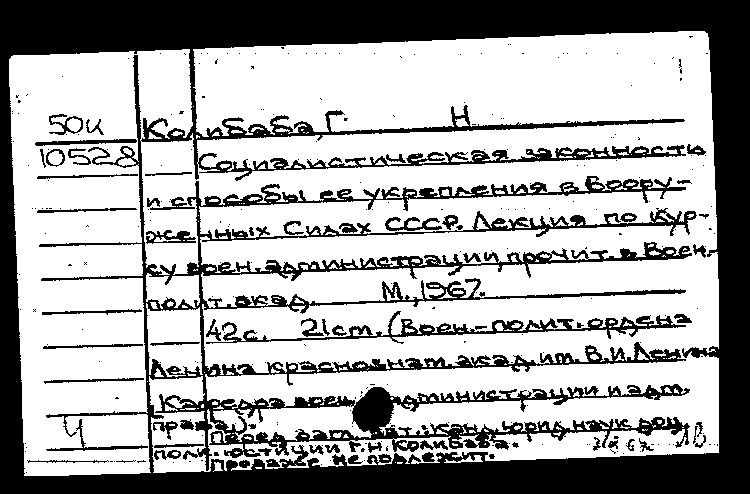 50и Колибаба, Г Н
10528 Социалистическая законность
и способы ее укрепления в Воору-
женных Силах СССР. Лекция по кур-
су воен. администрации, прочит. в Воен.-
полит. акад. М., 1967.
42с. 21cm. (Воен.-полит. ордена
Ленина краснознам. акад. им. В.И. Ленина
Кафедра воен. администрации и адм.
права).
Ч Перед загл. авт.: канд. юрид. наук доц.
полк. юстиции Г.Н. Колибаба.
Продаже не подлежит.